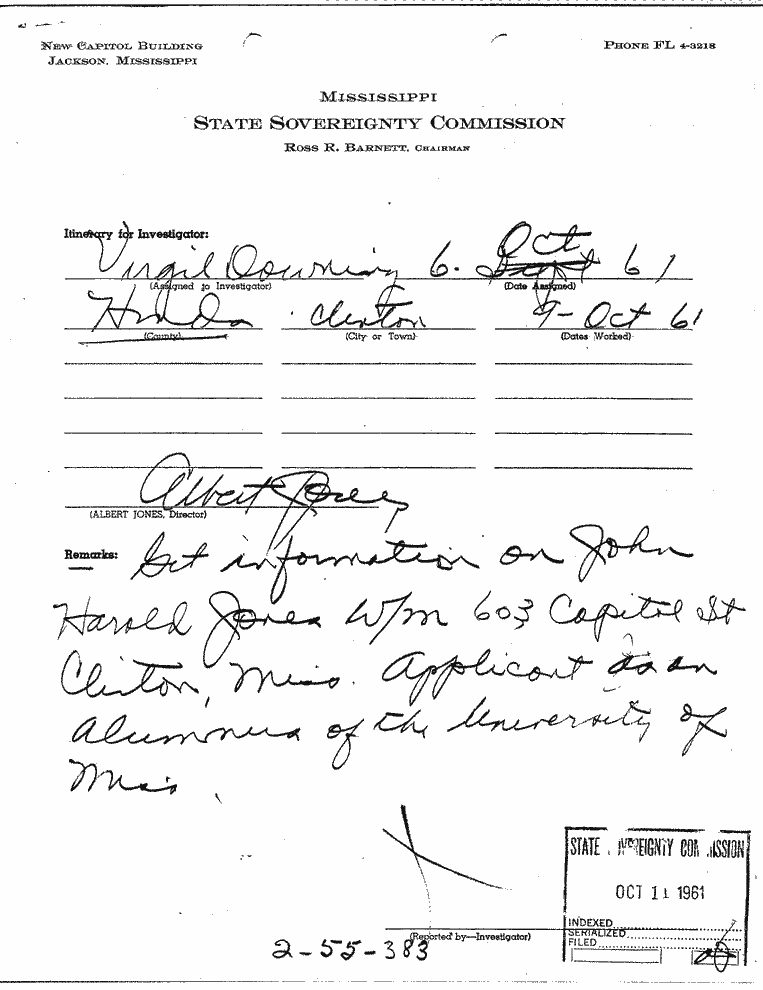 NEW CAPITOL BUILDING
JACKSON, MISSISSIPPI
PHONE FL 4-3218
MISSISSIPPI
STATE SOVEREIGNTY COMMISSION
ROSS R. BARNETT, CHAIRMAN
Itinerary for Investigator:
Virgil Downing 6. Oct Sept 61
(Assigned to Investigator) (Date Assigned)
Hinds Clinton 9-Oct 61
(County) (City or Town) (Dates Worked)
Albert Jones
(ALBERT JONES, Director)
Remarks: Get information on John
Harold Jones W/M 603 Capitol St
Clinton, Miss. Applicant as an
Alumnus of the University of
Miss.
STATE SOVEREIGNTY COMMISSION
OCT 11 1961
INDEXED
SERIALIZED
FILED
(Reported by—Investigator)
2-55-383